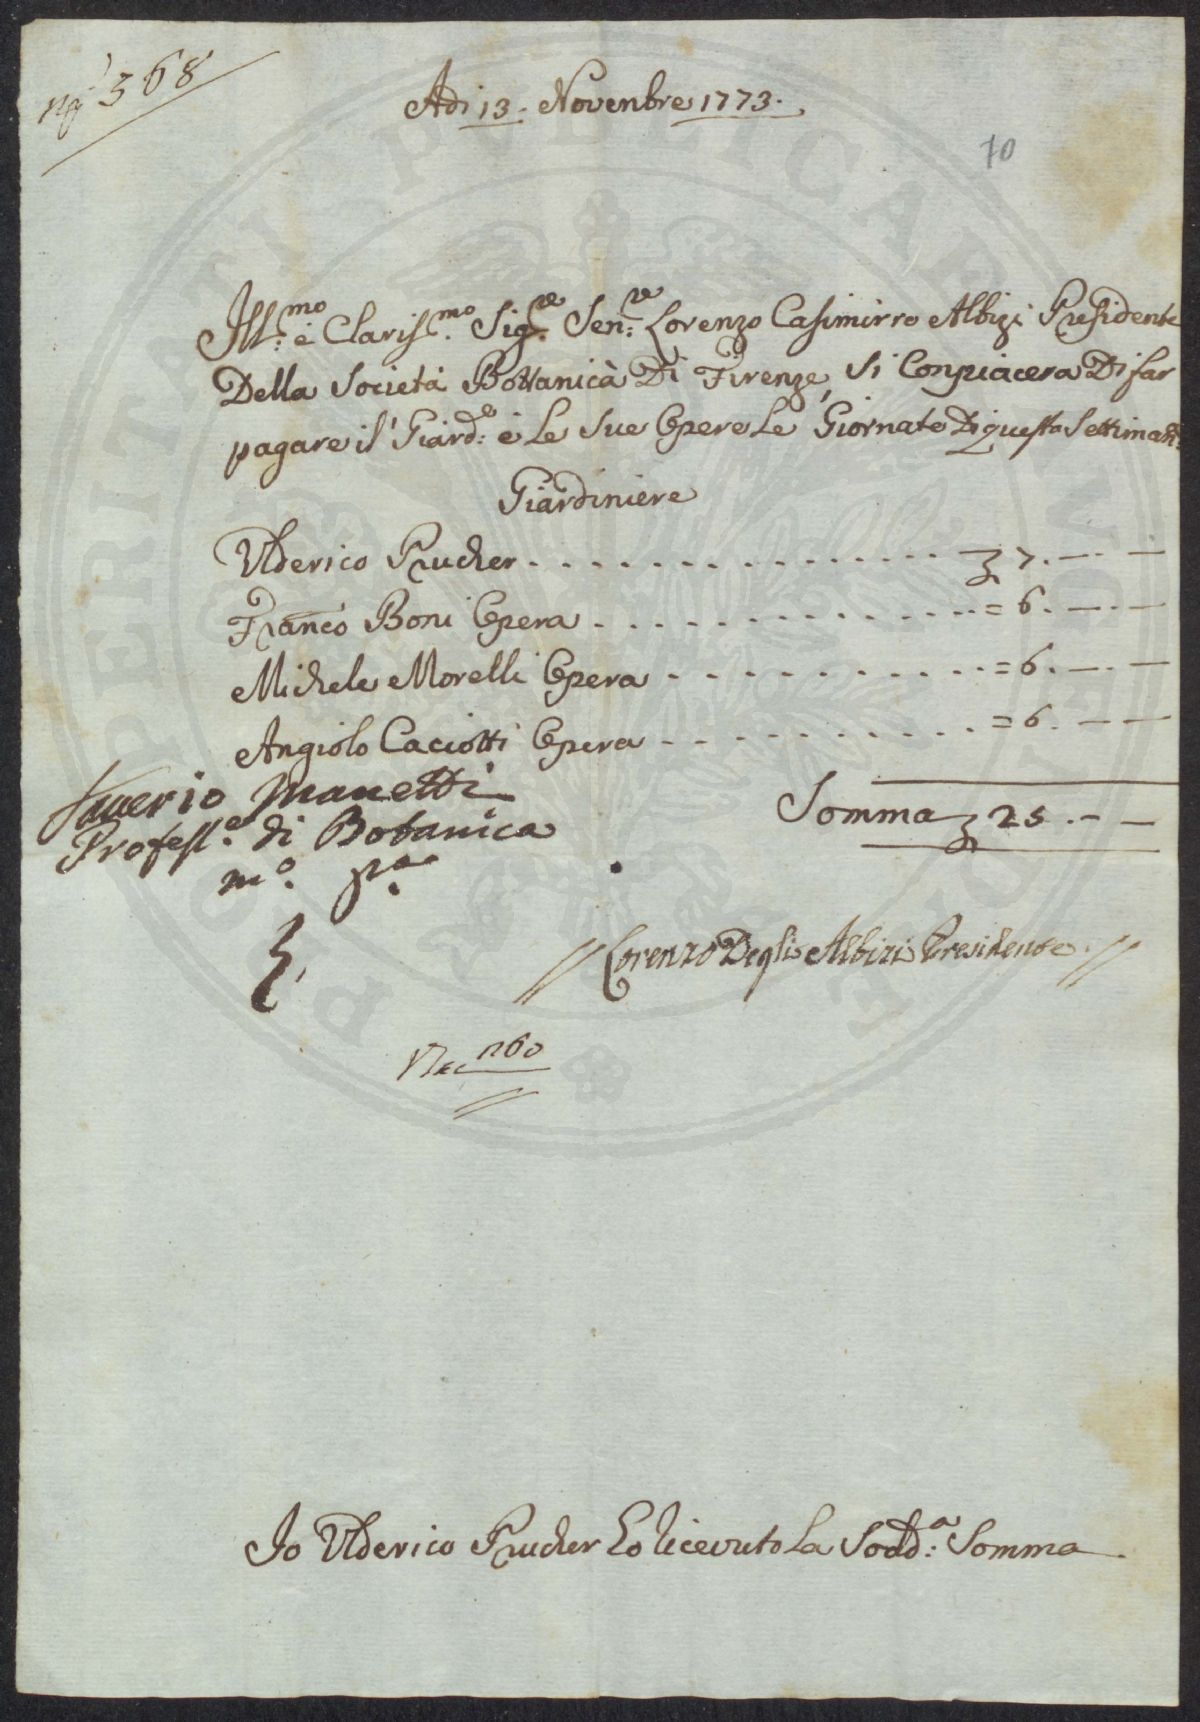 368
Adi 13. Novenbre 1773.
10
Ill.mo e Clariss.mo Sig.re Sen.re Lorenzo Casimirro Albizi Presidente
Della Società Bottanicà Di Firenze, Si Conpiacera Di far
pagare il' Giard.e e Le Sue Opere Le Giornate Di questa Settimana
Giardiniere
Ulderico Prucher . . . . . . . . . . . . . . . 7. — . —
Franco Boni Opera . . . . . . . . . . . . . = 6. — . —
Michele Morelli Opera . . . . . . . . . . . = 6. — . —
Angiolo Caciotti Opera . . . . . . . . . . . = 6. — —
Saverio Manetti
Profess.e di Botanica
m.o p.a
Somma 25. — —
// Lorenzo Degli Albizi Presidente. //
260
Io Ulderico Prucher Ho Ricevuto La Sodd.a Somma